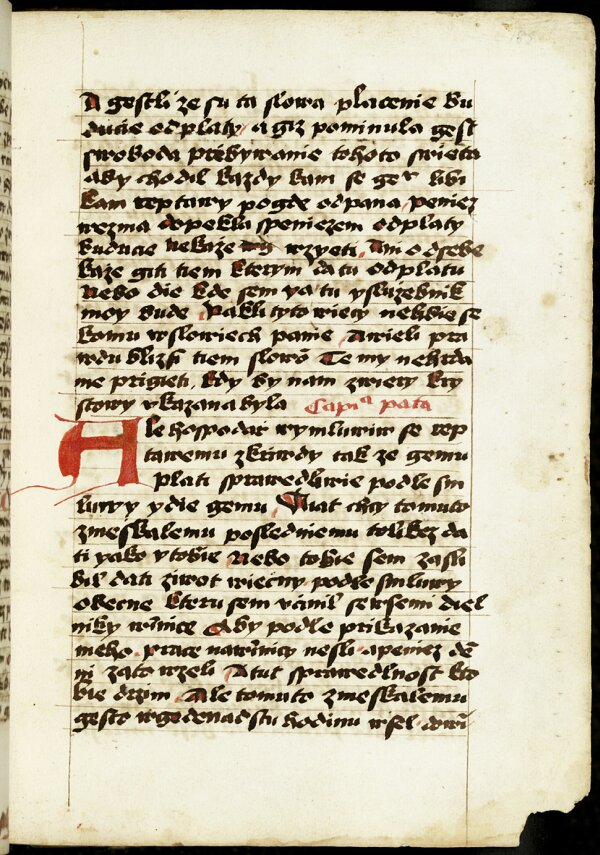 A gestli ze su ta slowa placenie bu
ducie odplaty a giz pominula gest
swoboda przebywanie tohoto swieta
aby chodil kazdy kam se geᵐ libi
kam reptawy pogde odpana peniez
wezma dopekla speniezem odplaty
buducie nekaze wzyeti Ani odsebe
kaze giti tiem kterym da tu odplatu
Nebo die kde sem ya tu y sluzebnik
moy bude Paklityto wiecy nelibie se
komu wslowiech panie A wieli pra
wdu blizssi tiem slowō Te my nehrda
me prigieti kdy by nam zwiery kry
stowy vkazana byla Capiᵃ pata
Ale hospodar wymluwiw se rep
tawemu zkriwdy tak ze gemu
plati sprawedliwie podle sm
luwy y die gemu Wiat chcy tomuto
zmeskalemu posledniemu tolikez da
ti yako y tobie Nebo tobie sem zasli
bil dati ziwot wiecny podle smluwy
obecne kteru sem vcinil sewsemi diel
niky winice Aby podle prikazanie
meho prace nawinnicy nesli apeniez dē
ni zato wzeli A tut sprawedlnost kto
bie drzim Ale tomuto zmeskalemu
gesto wgedenadstu hodinu wssel